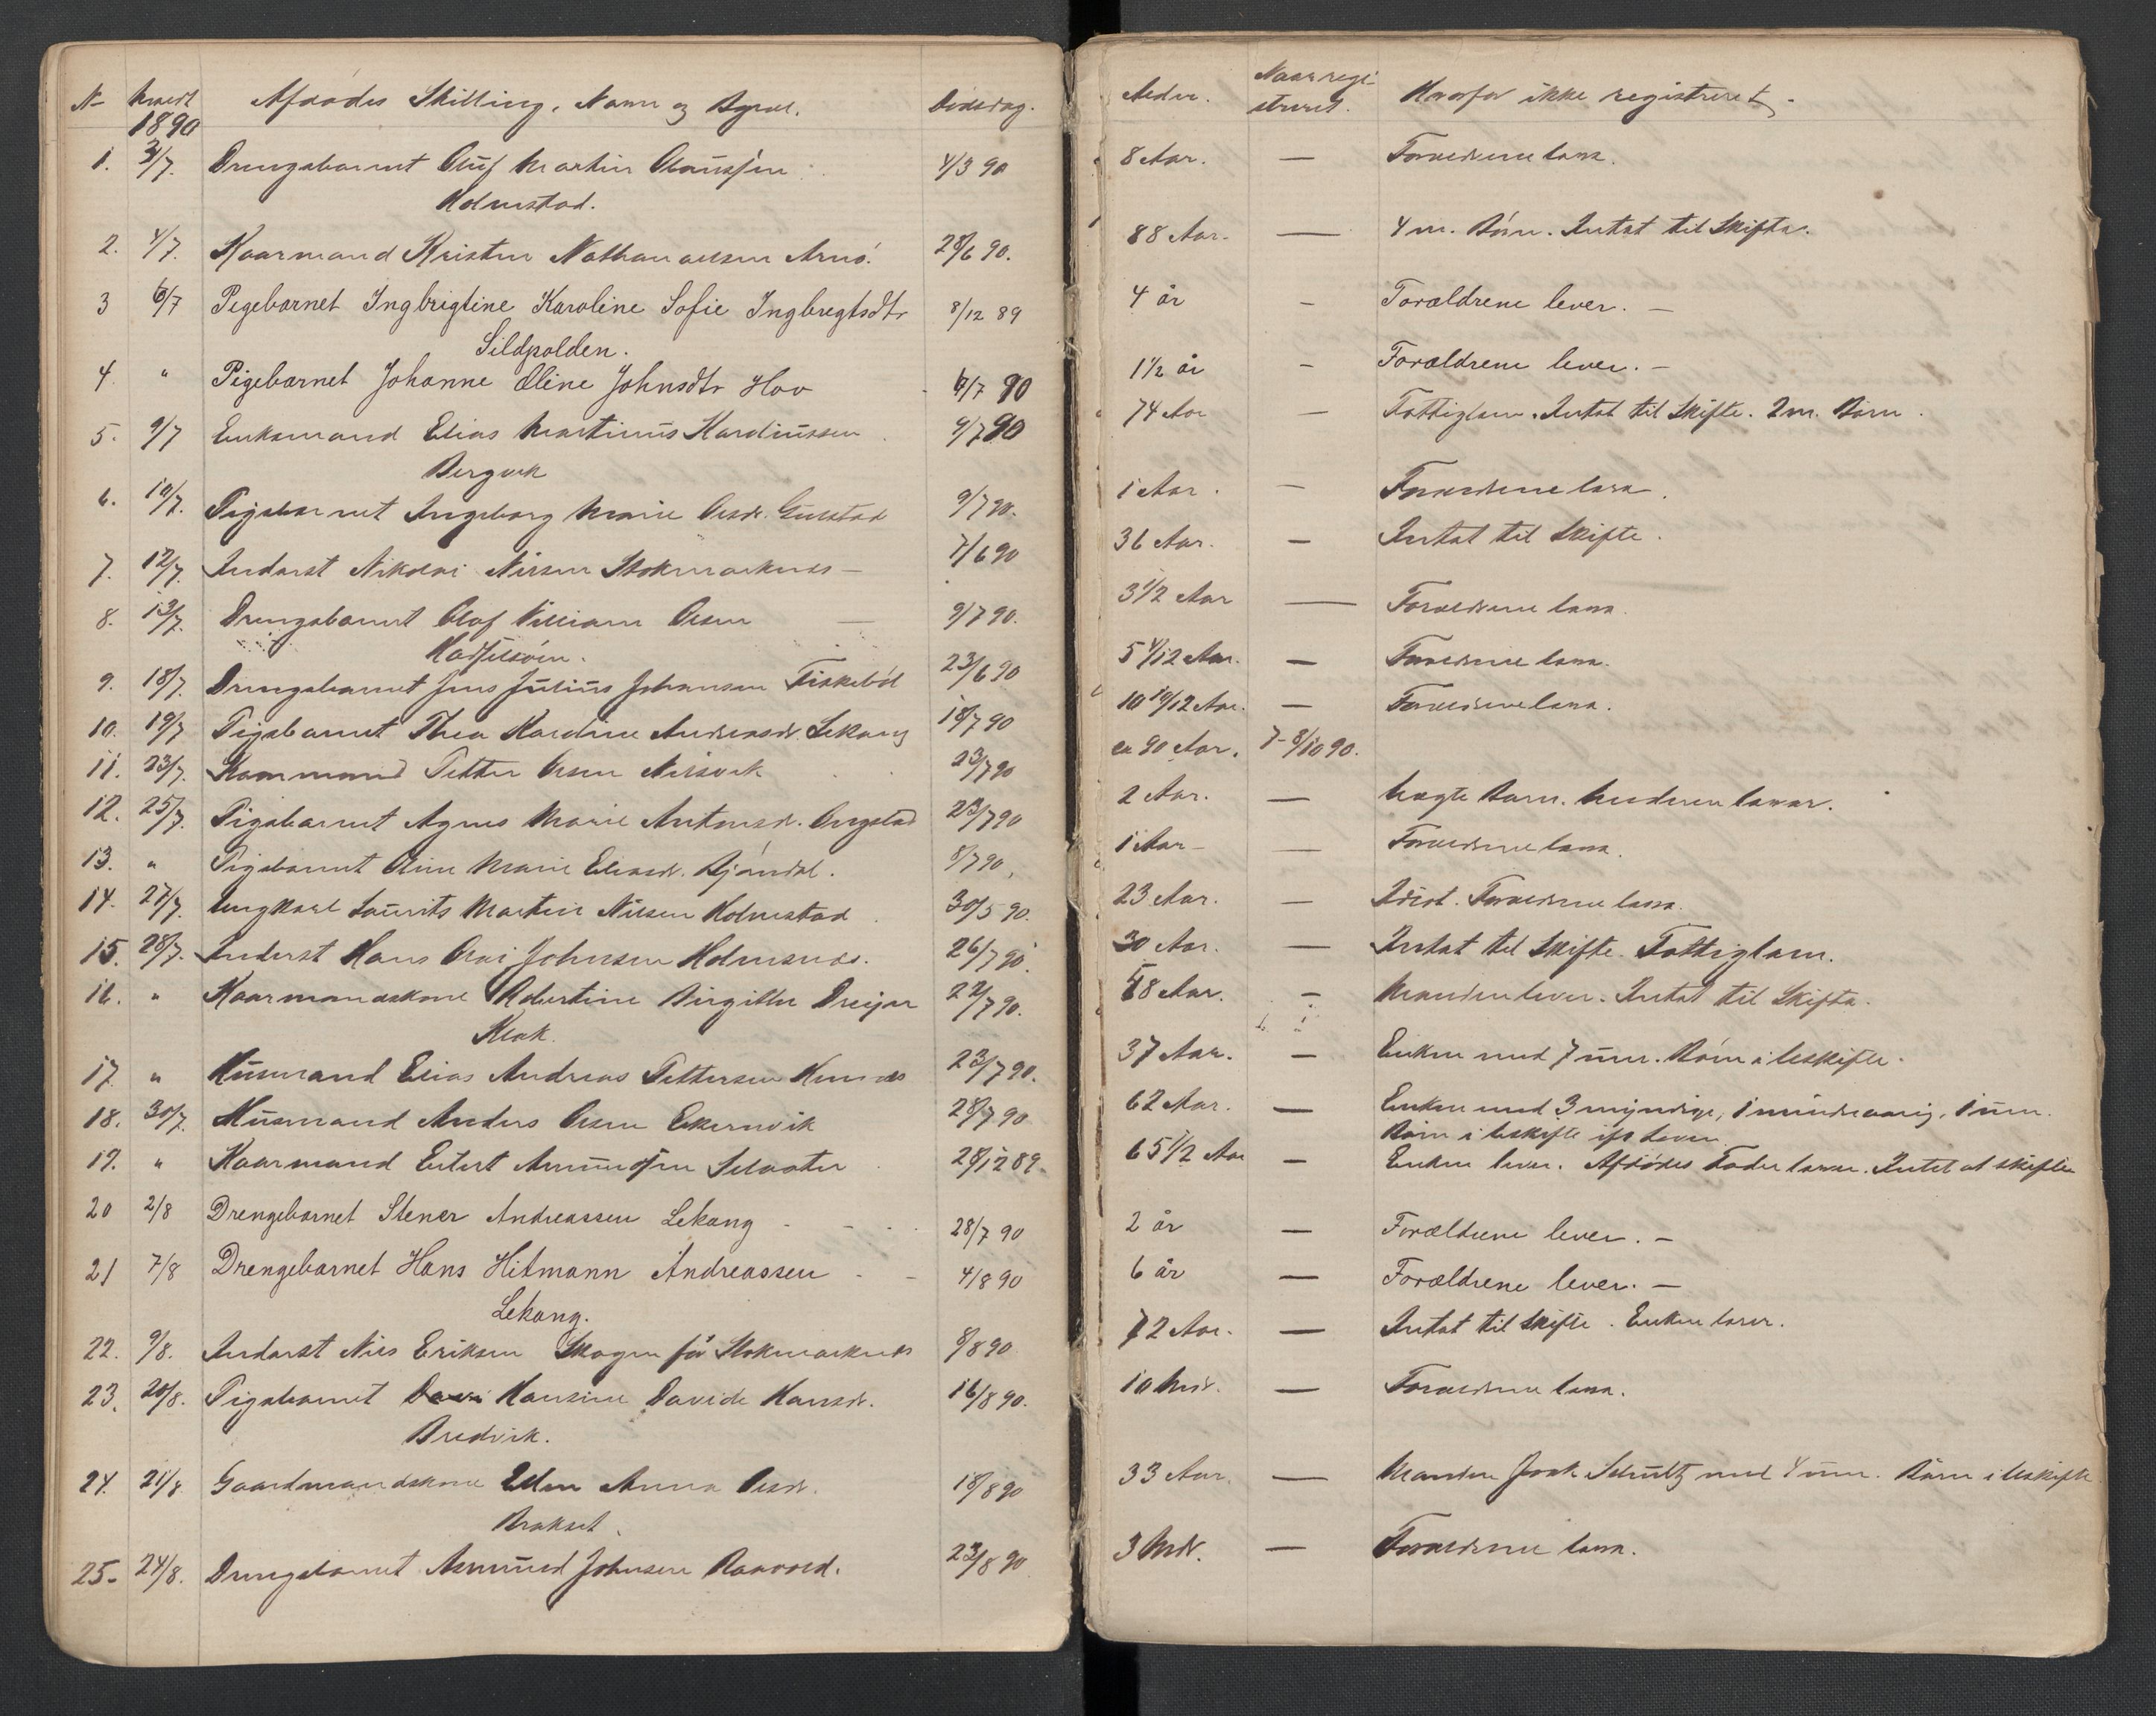 No Anmeldt 1890 Afdødes Stilling, Navn og Bopæl. Dødsdag. Alder. Naar regi-streret. Hvorfor ikke registreret.
1. 3/7. Drengebarnet Oluf Martin Olaussen 4/3 90 8 Aar. — Forældrene lever.
Holmstad.
2. 4/7. Kaarmand Kristen Nathanaelsen Arnø. 28/6 90. 88 Aar. — 4 m. Børn. Intet til Skifte.
3 6/7 Pigebarnet Ingbrigtine Karoline Sofie Ingbregtsdtr 8/12 89 4 år – Forældrene lever. —
Sildpolden.
4. " Pigebarnet Johanne Eline Johnsdtr Hov 6/7 90 1 1/2 år – Forældrene lever. —
5. 9/7 Enkemand Elias Martinus Hardinussen 9/7 90 74 Aar — Fattiglem. Intet til Skifte. 2 m. Børn.
Bergvik
6. 10/7. Pigebarnet Ingeborg Marie Olsdr. Guvstad 9/7 90. 1 Aar. — Forældrene lever.
7. 12/7. Inderst Nikolai Nilsen Stokmarknes — 7/6 90 36 Aar. — Intet til Skifte.
8. 13/7. Drengebarnet Olaf Villiam Olsen — 9/7 90. 3 1/2 Aar — Forældrene lever.
Hadseløen.
9. 18/7. Drengebarnet Jens Julius Johansen Fiskebøl 23/6 90 5 4/12 Aar. — Forældrene lever.
10. 19/7 Pigebarnet Thea Hardine Andreasdr. Lekang 18/7 90 10 10/12 Aar. — Forældrene lever.
11. 23/7. Kaarmand Petter Olsen Nilsvik 23/7 90 ca 90 Aar. 7-8/10 90.
12. 25/7. Pigebarnet Agnes Marie Antonsdr. Ongstad 23/7 90 2 Aar. — Uægte Barn. Moderen lever.
13. " Pigebarnet Oline Marie Eliasdr. Bjørndal. 8/7 90, 1 Aar — Forældrene lever.
14. 27/7. Ungkarl Laurits Martin Nilsen Holmstad 30/5 90. 23 Aar. — Idiot. Forældrene lever.
15. 28/7. Inderst Hans Olai Johnsen Holmsnes. 26/7 90. 30 Aar. — Intet til Skifte. Fattiglem.
16. " Kaarmandskone Robertine Birgitte Dreijer 22/7 90. 58 Aar. — Manden lever. Intet til Skifte.
Klak.
17. " Husmand Elias Andreas Pettersen Hemnes 23/7 90. 37 Aar. — Enken med 7 um. Børn i Uskifte.
18. 30/7. Husmand Anders Olsen Ekornvik 28/7 90 62 Aar. — Enken med 3 myndige, 1 mindreaarig, 1 um.
Børn i Uskifte ifr Loven
19. " Kaarmand Eilert Amundsen Selaater 28/12 89. 65 1/2 Aar — Enken lever. Afdødes Fader lever. Intet at skifte
20 2/8 Drengebarnet Stener Andreassen Lekang 28/7 90 2 år — Forældrene lever. —
21 7/8 Drengebarnet Hans Hitmann Andreassen 4/8 90 6 år — Forældrene lever. —
Lekang.
22. 9/8. Inderst Nils Eriksen Skogen på Stokmarknes 8/8 90 72 Aar. — Intet til Skifte. Enken lever.
23. 20/8. Pigebarnet Hansine Davide Hansdr. 16/8 90. 10 Mdr. — Forældrene lever.
Bredvik.
24. 21/8 Gaardmandskone Ellen Anna Olsdr. 18/8 90 33 Aar. — Manden Joak Schultz med 4 um. Børn i Uskifte
Brakset.
25. 24/8. Drengebarnet Asmund Johnsen Raavold. 23/8 90 3 Mdr. — Forældrene lever.